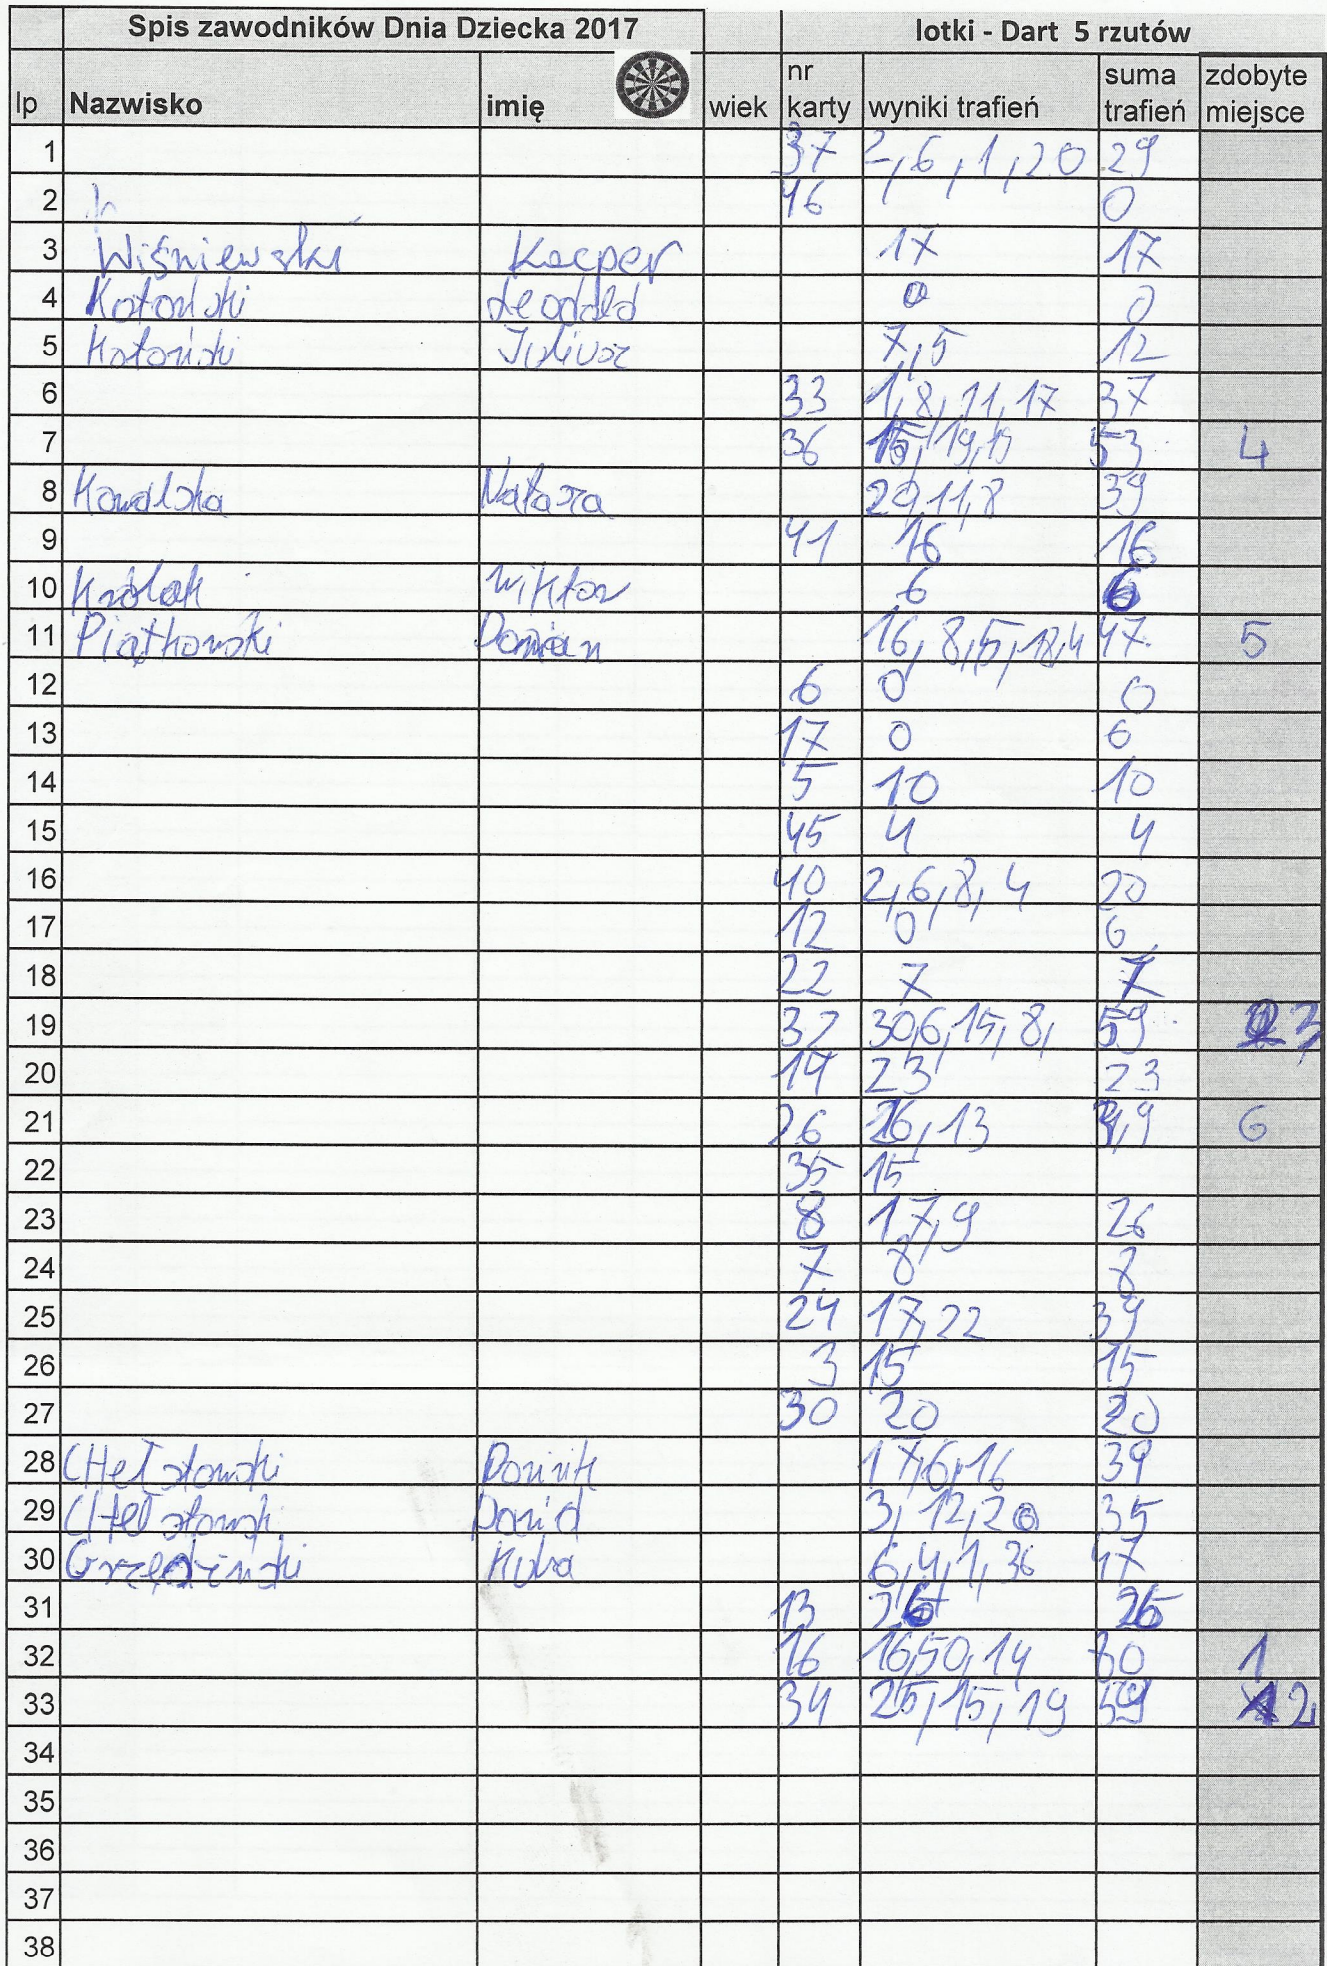 Spis zawodników Dnia Dziecka 2017 lotki - Dart 5 rzutów
lp Nazwisko imię wiek nr karty wyniki trafień suma trafień zdobyte miejsce
1 37 2, 6, 1, 20 29
2 16 0
3 Wiśniewski Kacper 17 17
4 Kotoński Leopold 0 0
5 Kotoński Juliusz 7, 5 12
6 33 1, 8, 11, 17 37
7 36 15, 19, 19 53 4
8 Kowalska Natasza 20, 11, 8 39
9 41 16 16
10 Królak Wiktor 6 6
11 Piątkowski Damian 16, 8, 5, 18, 4 47 5
12 6 0 0
13 17 0 0
14 5 10 10
15 45 4 4
16 40 2, 6, 8, 4 20
17 12 0 0
18 22 7 7
19 32 30, 6, 15, 8, 59 3
20 19 23 23
21 26 26, 13 6
22 35 15
23 8 17, 9 26
24 7 8 8
25 24 17, 22 39
26 3 15 15
27 30 20 20
28 CHełstowski Dominik 17, 6, 16 39
29 CHełstowski Dawid 3, 12, 20 35
30 Grzędziński Kuba 6, 4, 1, 36 47
31 13 26 26
32 16 16, 50, 14 80 1
33 34 25, 15, 19 59 2
34
35
36
37
38